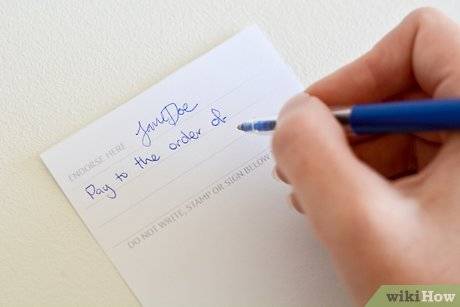 ENDORSE HERE Jane Doe
Pay to the order of
DO NOT WRITE, STAMP OR SIGN BELOW
wikiHow